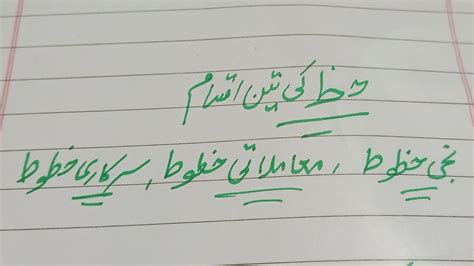 خط کی تین اقسام
نجی خطوط ، معاملاتی خطوط ، سرکاری خطوط